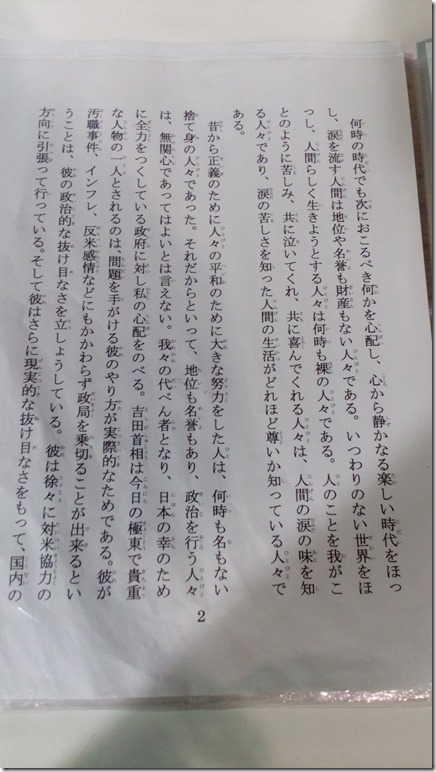 何時の時代でも次におこるべき何かを心配し、心から静かなる楽しい時代をほっ
し、涙を流す人間は地位や名誉も財産もない人々である。いつわりのない世界をほ
っし、人間らしく生きようとする人々は何時も裸の人々である。人のことを我がこ
とのように苦しみ、共に泣いてくれ、共に喜んでくれる人々は、人間の涙の味を知
る人々であり、涙の苦しさを知った人間の生活がどれほど尊いか知っている人々で
ある。
昔から正義のために人々の平和のために大きな努力をした人は、何時も名もない
捨て身の人々であった。それだからといって、地位も名誉もあり、政治を行う人々
は、無関心であってはよいとは言えない。我々の代べん者となり、日本の幸のため
に全力をつくしている政府に対し私の心配をのべる。吉田首相は今日の極東で貴重
な人物の一人とされるのは、問題を手がける彼のやり方が実際的なためである。彼が
汚職事件、インフレ、反米感情などにもかかわらず政局を乗切ることが出来るとい
うことは、彼の政治的な抜け目なさを立しょうしている。彼は徐々に対米協力の
方向に引張って行っている。そして彼はさらに現実的な抜け目なさをもって、国内の
2